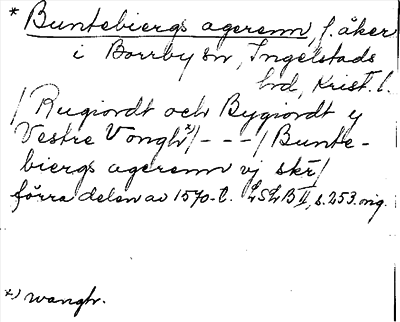 * Buntebiergs agerenn, f. åker
i Borrby sn, Ingelstads
hrd, Krist. l.
/ Rugiordt och Bygiordt y
Vestre Vongh x)/ - - - / Bunte-
biergs agerenn vj skr/
förra delen av 1570-t. LSLB II, s. 253. orig.
x) wangh.